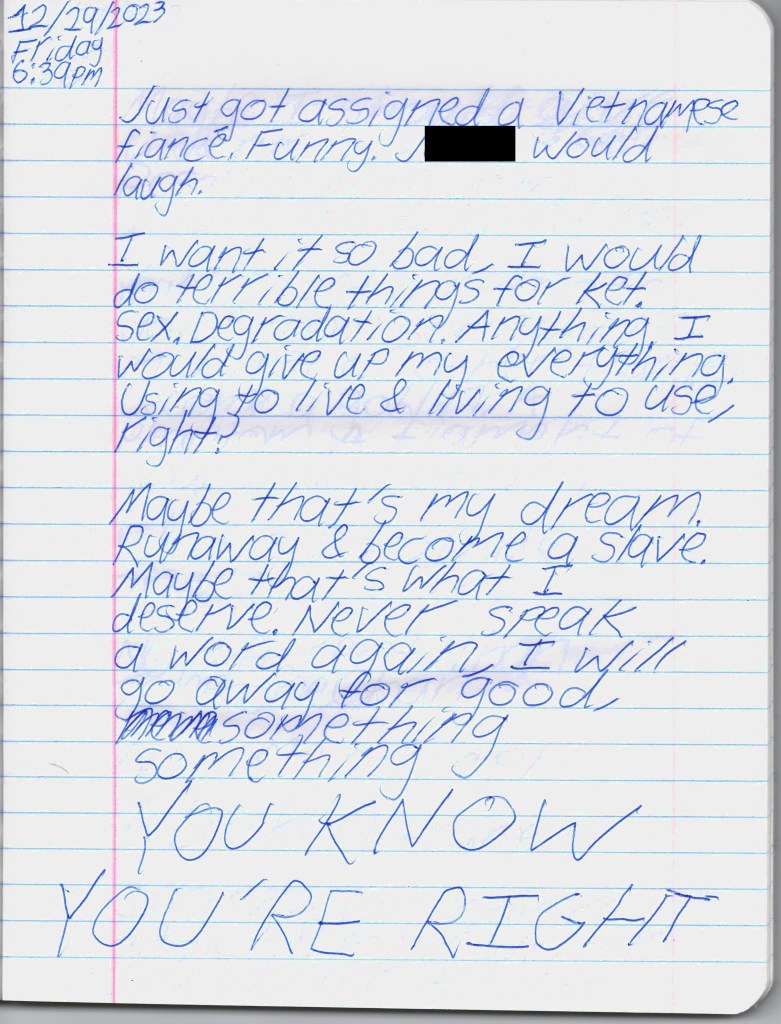 12/29/2023
Friday
6:39pm
Just got assigned a Vietnamese
fiancé. Funny. J would
laugh.
I want it so bad, I would
do terrible things for ket.
Sex. Degradation. Anything. I
would give up my everything.
Using to live & living to use,
right?
Maybe that's my dream.
Runaway & become a slave.
Maybe that's what I
deserve. Never speak
a word again, I will
go away for good,
something
something
YOU KNOW
YOU'RE RIGHT